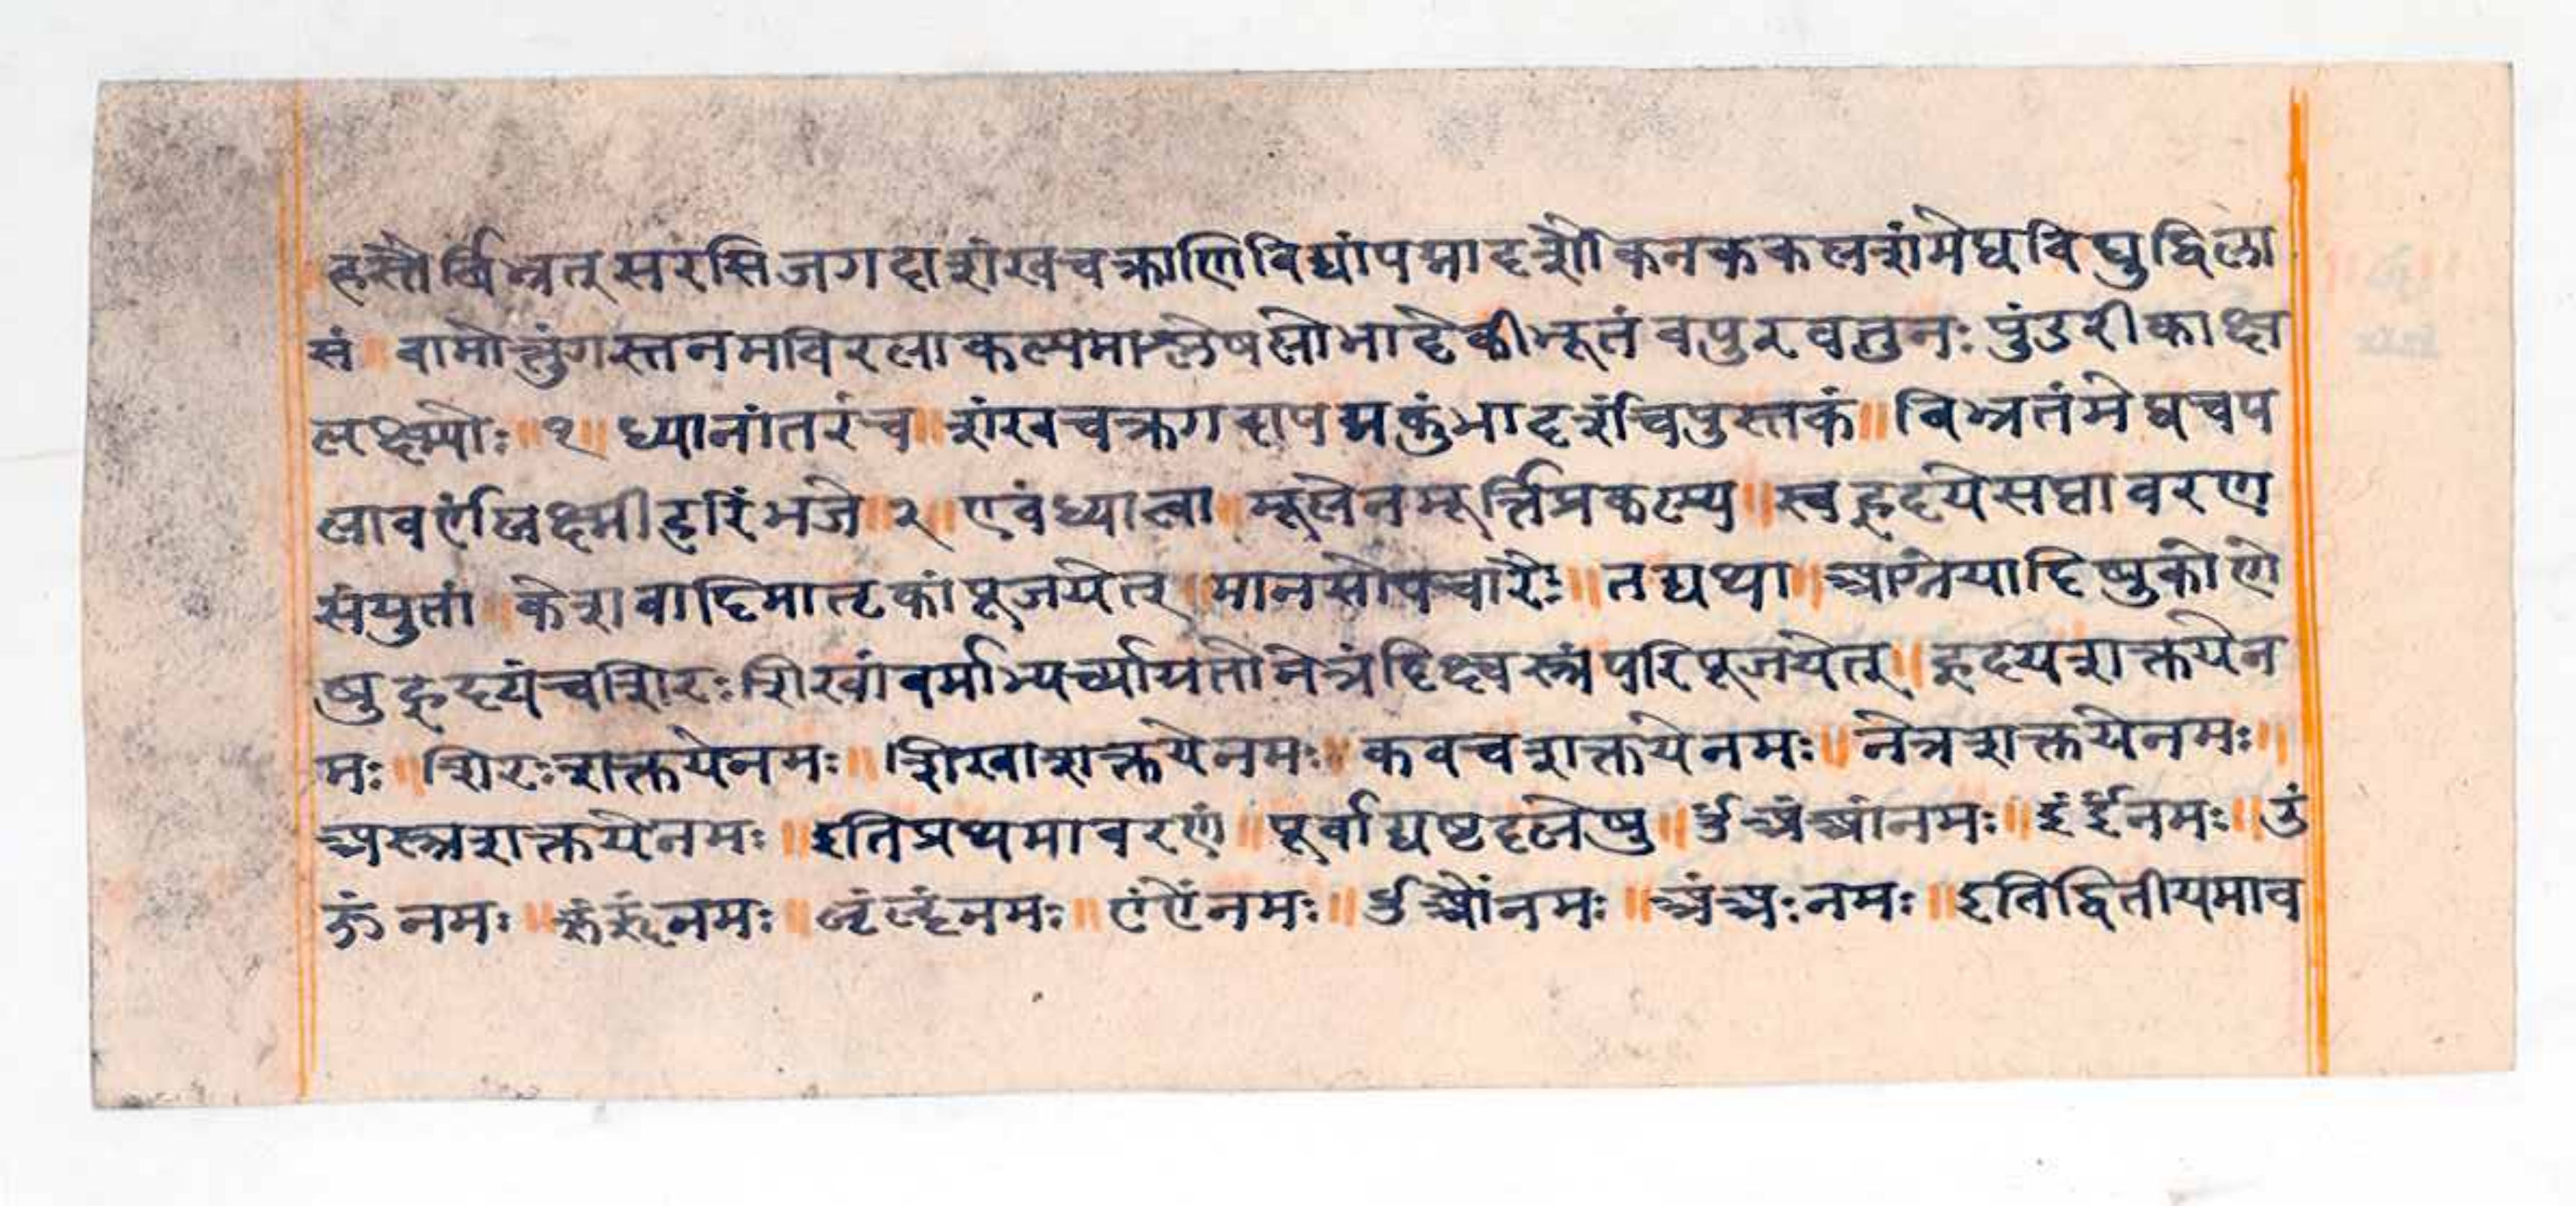 हस्तैर्बिभ्रत् सरसिजगदाशंखचक्राणिविद्यांपद्मादर्शौकनककलशंमेघविद्युद्विला
सं वामोत्तुंगस्तनमविरलाकल्पमाश्लेषलोभादेकीभूतं वपुरवतुनः पुंडरीकाक्ष
लक्ष्म्योः ॥ १ ॥ ध्यानांतरंच ॥ शंखचक्रगदापद्मकुंभादर्शंचपुस्तकं ॥ बिभ्रतंमेघचप
लावर्णंलक्ष्मीहरिंभजे ॥ २ ॥ एवंध्यात्वा ॥ मूलेनमूर्त्तिप्रकल्प्य ॥ स्वहृदयेसप्तावरण
संयुतां ॥ केशवादिमातृकांपूजयेत् ॥ मानसोपचारैः ॥ तद्यथा ॥ आग्नेयादिषुकोणे
षुहृदयंचशिरः शिखांवर्माभ्यर्च्याग्रतोनेत्रंदिक्ष्वस्त्रंपरिपूजयेत् ॥ हृदयशक्तयेन
मः ॥ शिरःशक्तयेनमः ॥ शिखाशक्तयेनमः ॥ कवचशक्तयेनमः ॥ नेत्रशक्तयेनमः ॥
अस्त्रशक्तयेनमः ॥ इतिप्रथमावरणं ॥ पूर्वाद्यष्टदलेषु ॥ ॐअंआंनमः ॥ इंईंनमः ॥ उं
ऊंनमः ॥ ऋंॠंनमः ॥ ऌंॡंनमः ॥ एंऐंनमः ॥ ओंऔंनमः ॥ अंअःनमः ॥ इतिद्वितीयमाव